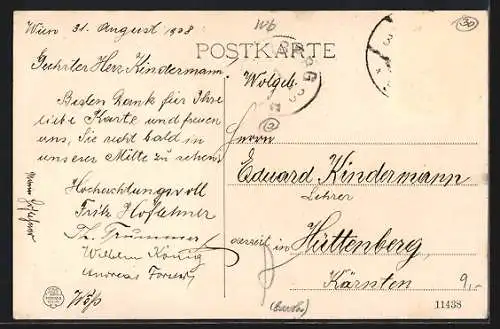 Wien 31. August 1908
Geehrter Herr Kindermann!
Besten Dank für Ihre
liebe Karte und freuen
uns, Sie recht bald in
unserer Mitte zu sehen
Hochachtungsvoll
Fritz Hoflehner
Th. Trummer
Wilhelm König
Andreas
POSTKARTE
Wolgeb.
Herrn
Eduard Kindermann
Lehrer
derzeit in
Hüttenberg,
Kärnten
9,-
11438